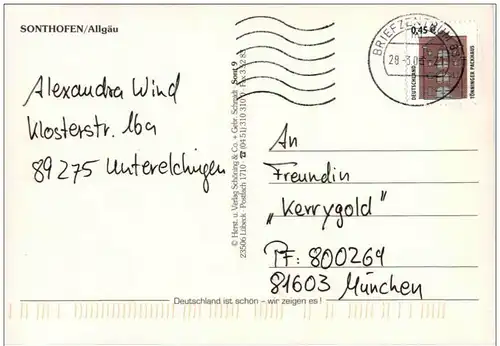 SONTHOFEN/Allgäu
Alexandra Wind
Klosterstr. 16a
89275 Unterelchingen
© Herst. u. Verlag Schöning & Co. + Gebr. Schmidt
23506 Lübeck · Postfach 1710 · ☎ (04 51) 310 310
Sont 9
BRIEFZENTRUM
0,45 €
DEUTSCHLAND
TÖNNINGER PACKHAUS
An
Freundin
„Kerrygold"
PF: 800269
81603 München
Deutschland ist schön – wir zeigen es!